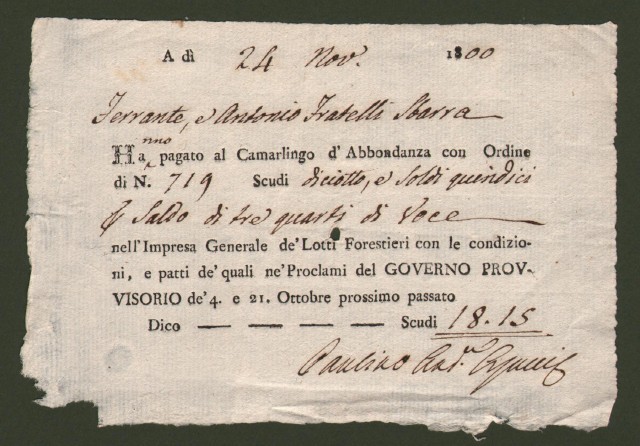 A dì 24 Nov.e 1800
Ferrante, e Antonio Fratelli Sbarra
Hanno pagato al Camarlingo d'Abbondanza con Ordine
di N. 719 Scudi diciotto, e Soldi quindici
Saldo di tre quarti di Voce
nell'Impresa Generale de'Lotti Forestieri con le condizio-
ni, e patti de'quali ne'Proclami del GOVERNO PROV-
VISORIO de'4. e 21. Ottobre prossimo passato
Dico — — — — — Scudi 18.15
Paulino